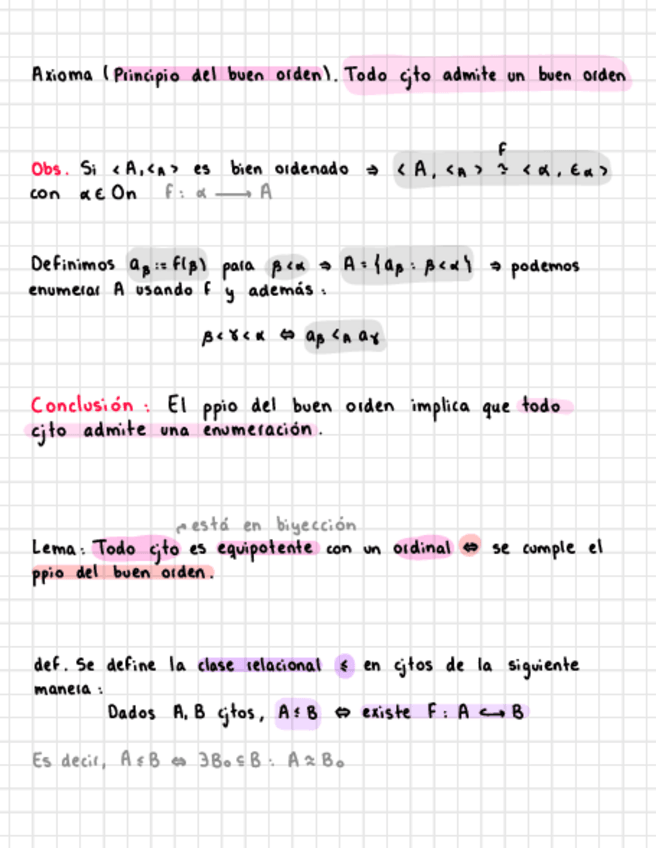 Axioma (Principio del buen orden). Todo cjto admite un buen orden
F
Obs. Si <A,<_A> es bien ordenado ⇒ <A, <_A> ≃ <α, ∈_α>
con α ∈ On F: α ⟶ A
Definimos a_β := f(β) para β<α ⇒ A = {a_β : β<α} ⇒ podemos
enumerar A usando F y además:
β<γ<α ⇔ a_β <_A a_γ
Conclusión: El ppio del buen orden implica que todo
cjto admite una enumeración.
está en biyección
Lema: Todo cjto es equipotente con un ordinal ⇔ se cumple el
ppio del buen orden.
def. Se define la clase relacional ≼ en cjtos de la siguiente
manera:
Dados A, B cjtos, A ≼ B ⇔ existe F: A ↪ B
Es decir, A ≼ B ⇔ ∃B₀ ⊆ B : A ≈ B₀